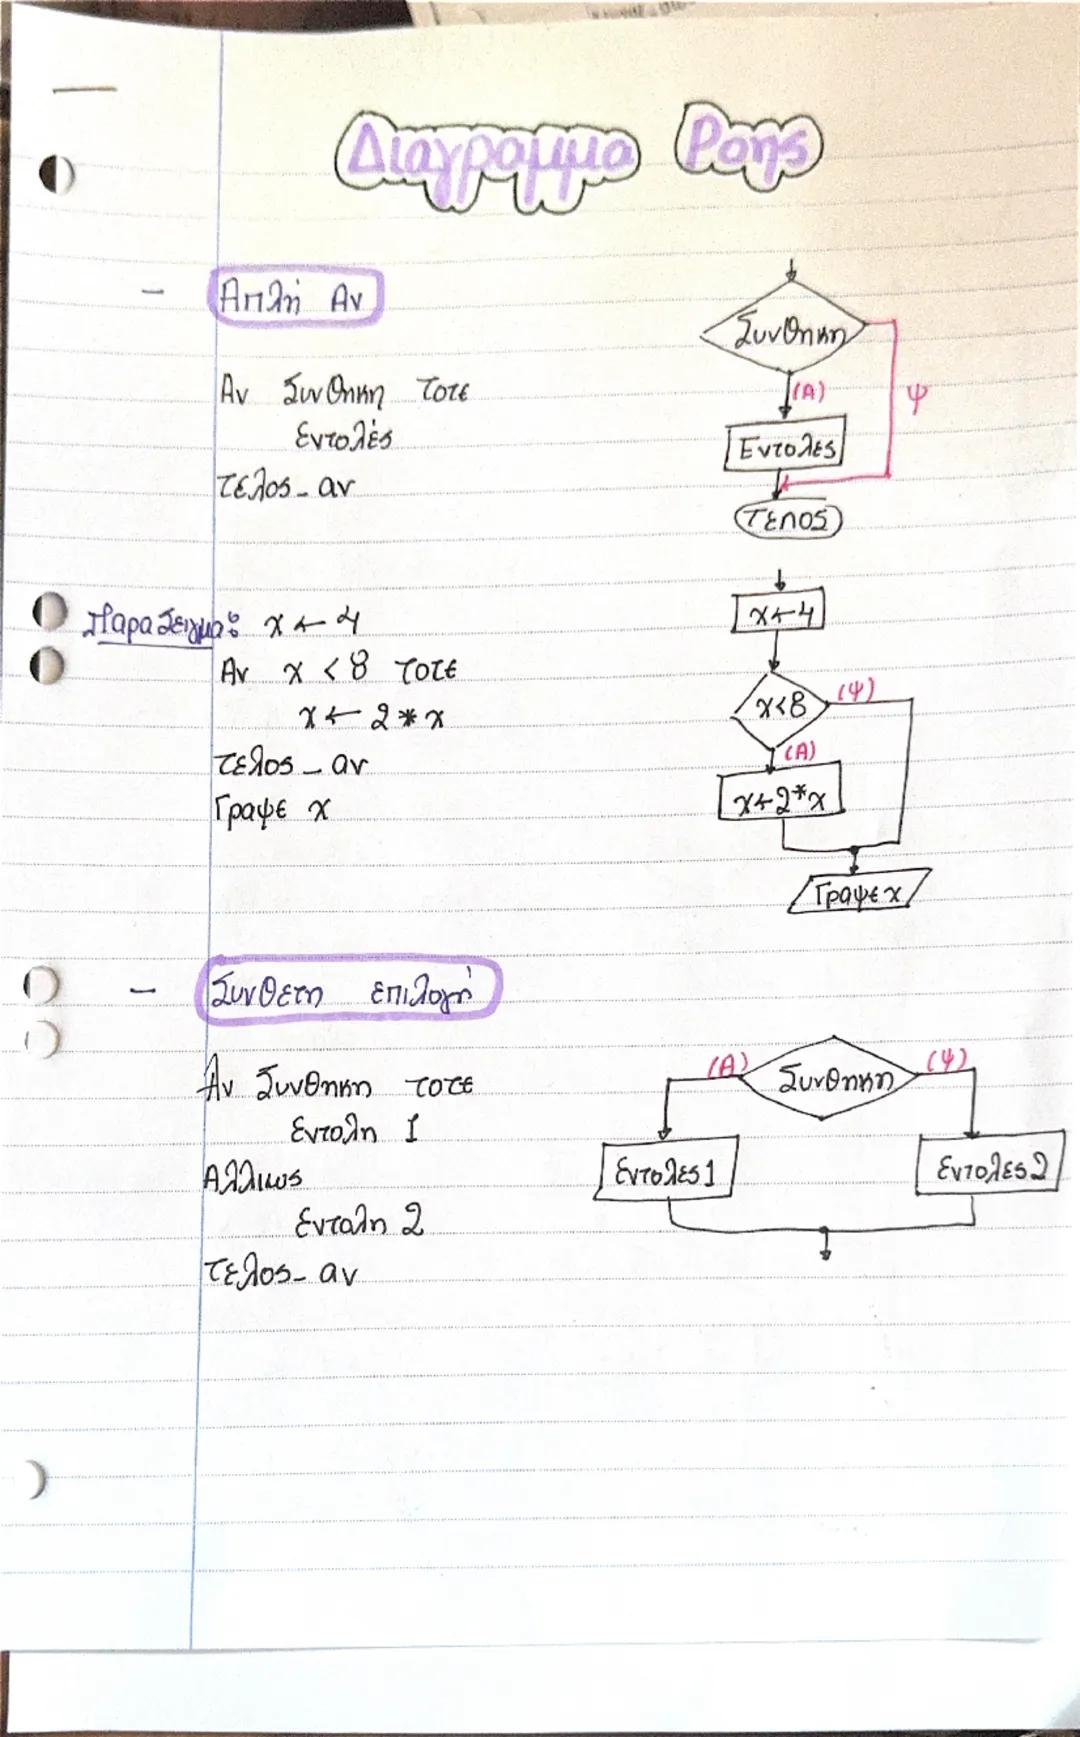 Διαγραμμα Ροης
- Απλή Αν
Αν Συνθηκη τοτε
Εντολές
τελος_αν
Συνθηκη
(Α)
Ψ
Εντολές
Τελος
Παραδειγμα: x ← 4
Αν x < 8 τοτε
x ← 2 * x
τελος_αν
Γραψε x
x ← 4
x<8
(Ψ)
(Α)
x ← 2*x
Γραψε x
- Συνθετη επιλογή
Αν Συνθηκη τοτε
Εντολη 1
Αλλιως
Ενταλη 2
τελος_αν
(Α) Συνθηκη (Ψ)
Εντολες 1 Εντολες 2